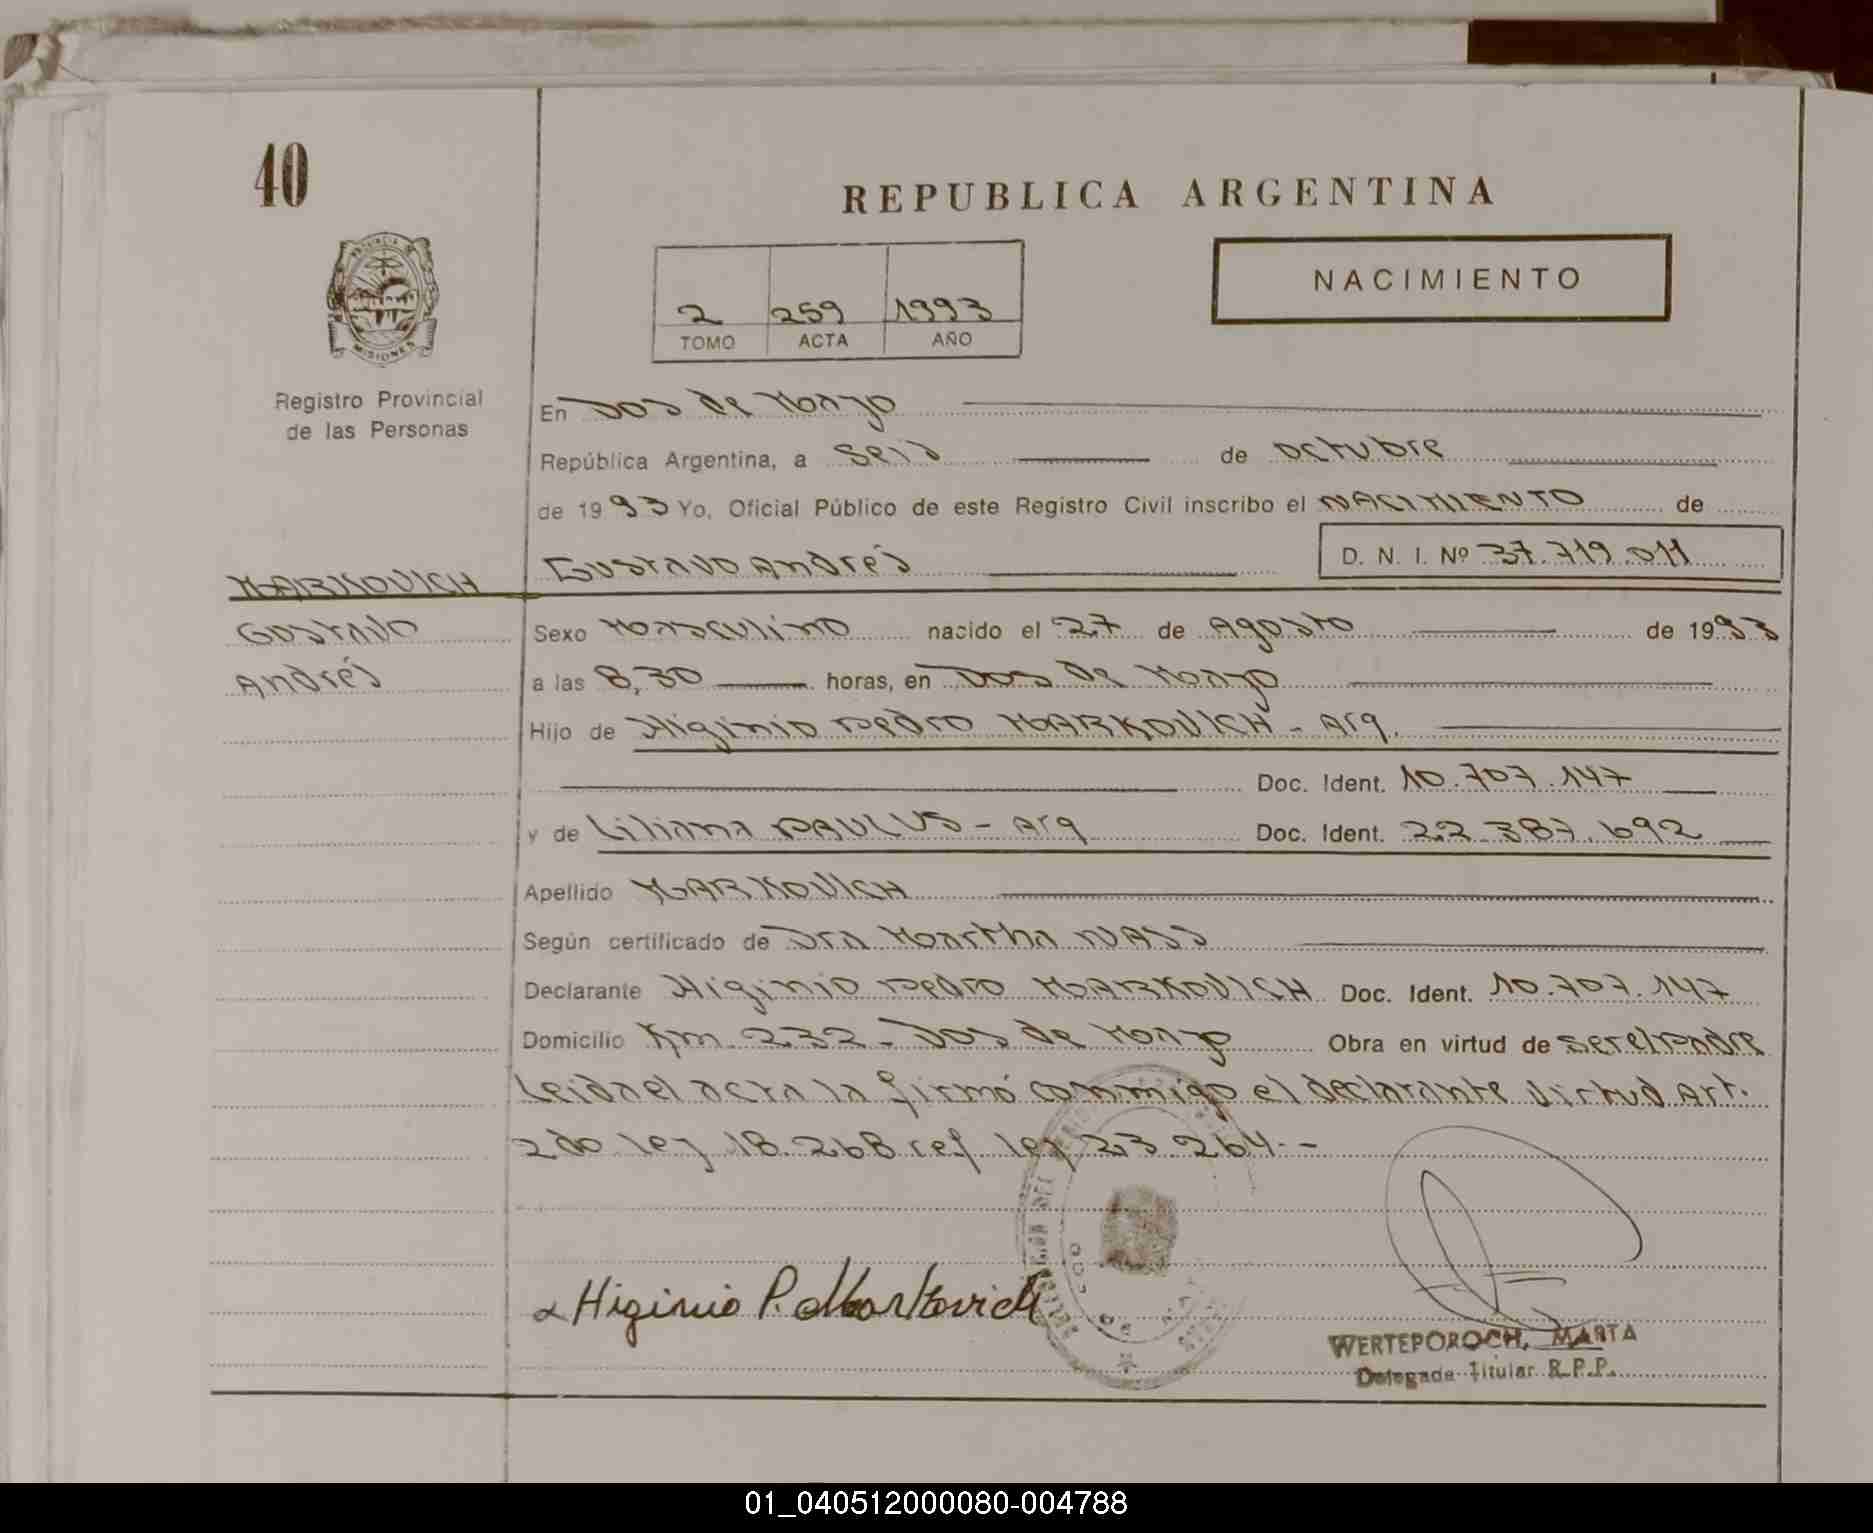 40
REPUBLICA ARGENTINA
NACIMIENTO
2 259 1993
TOMO ACTA AÑO
MISIONES
Registro Provincial
de las Personas
En Dos de Mayo
República Argentina, a Seis de octubre
de 1993 Yo, Oficial Público de este Registro Civil inscribo el NACIMIENTO de
Gustavo Andrés D. N. I. Nº 37.719.011
MARKOVICH
Gustavo
Andrés
Sexo Masculino nacido el 27 de Agosto de 1993
a las 8,30 horas, en Dos de Mayo
Hijo de Higinio Pedro MARKOVICH - Arg.
Doc. Ident. 10.707.147
y de Liliana PAULUS - Arg Doc. Ident. 22.387.692
Apellido MARKOVICH
Según certificado de Dra Martha NASS
Declarante Higinio Pedro MARKOVICH Doc. Ident. 10.707.147
Domicilio Km 232 - Dos de Mayo Obra en virtud de ser el Padre
Leida el acta la firmó conmigo el declarante virtud Art.
2do ley 18.268 ref ley 23.264--
Higinio P. Markovich
WERTEPOROCH, MARTA
Delegada Titular R.P.P.
01_040512000080-004788